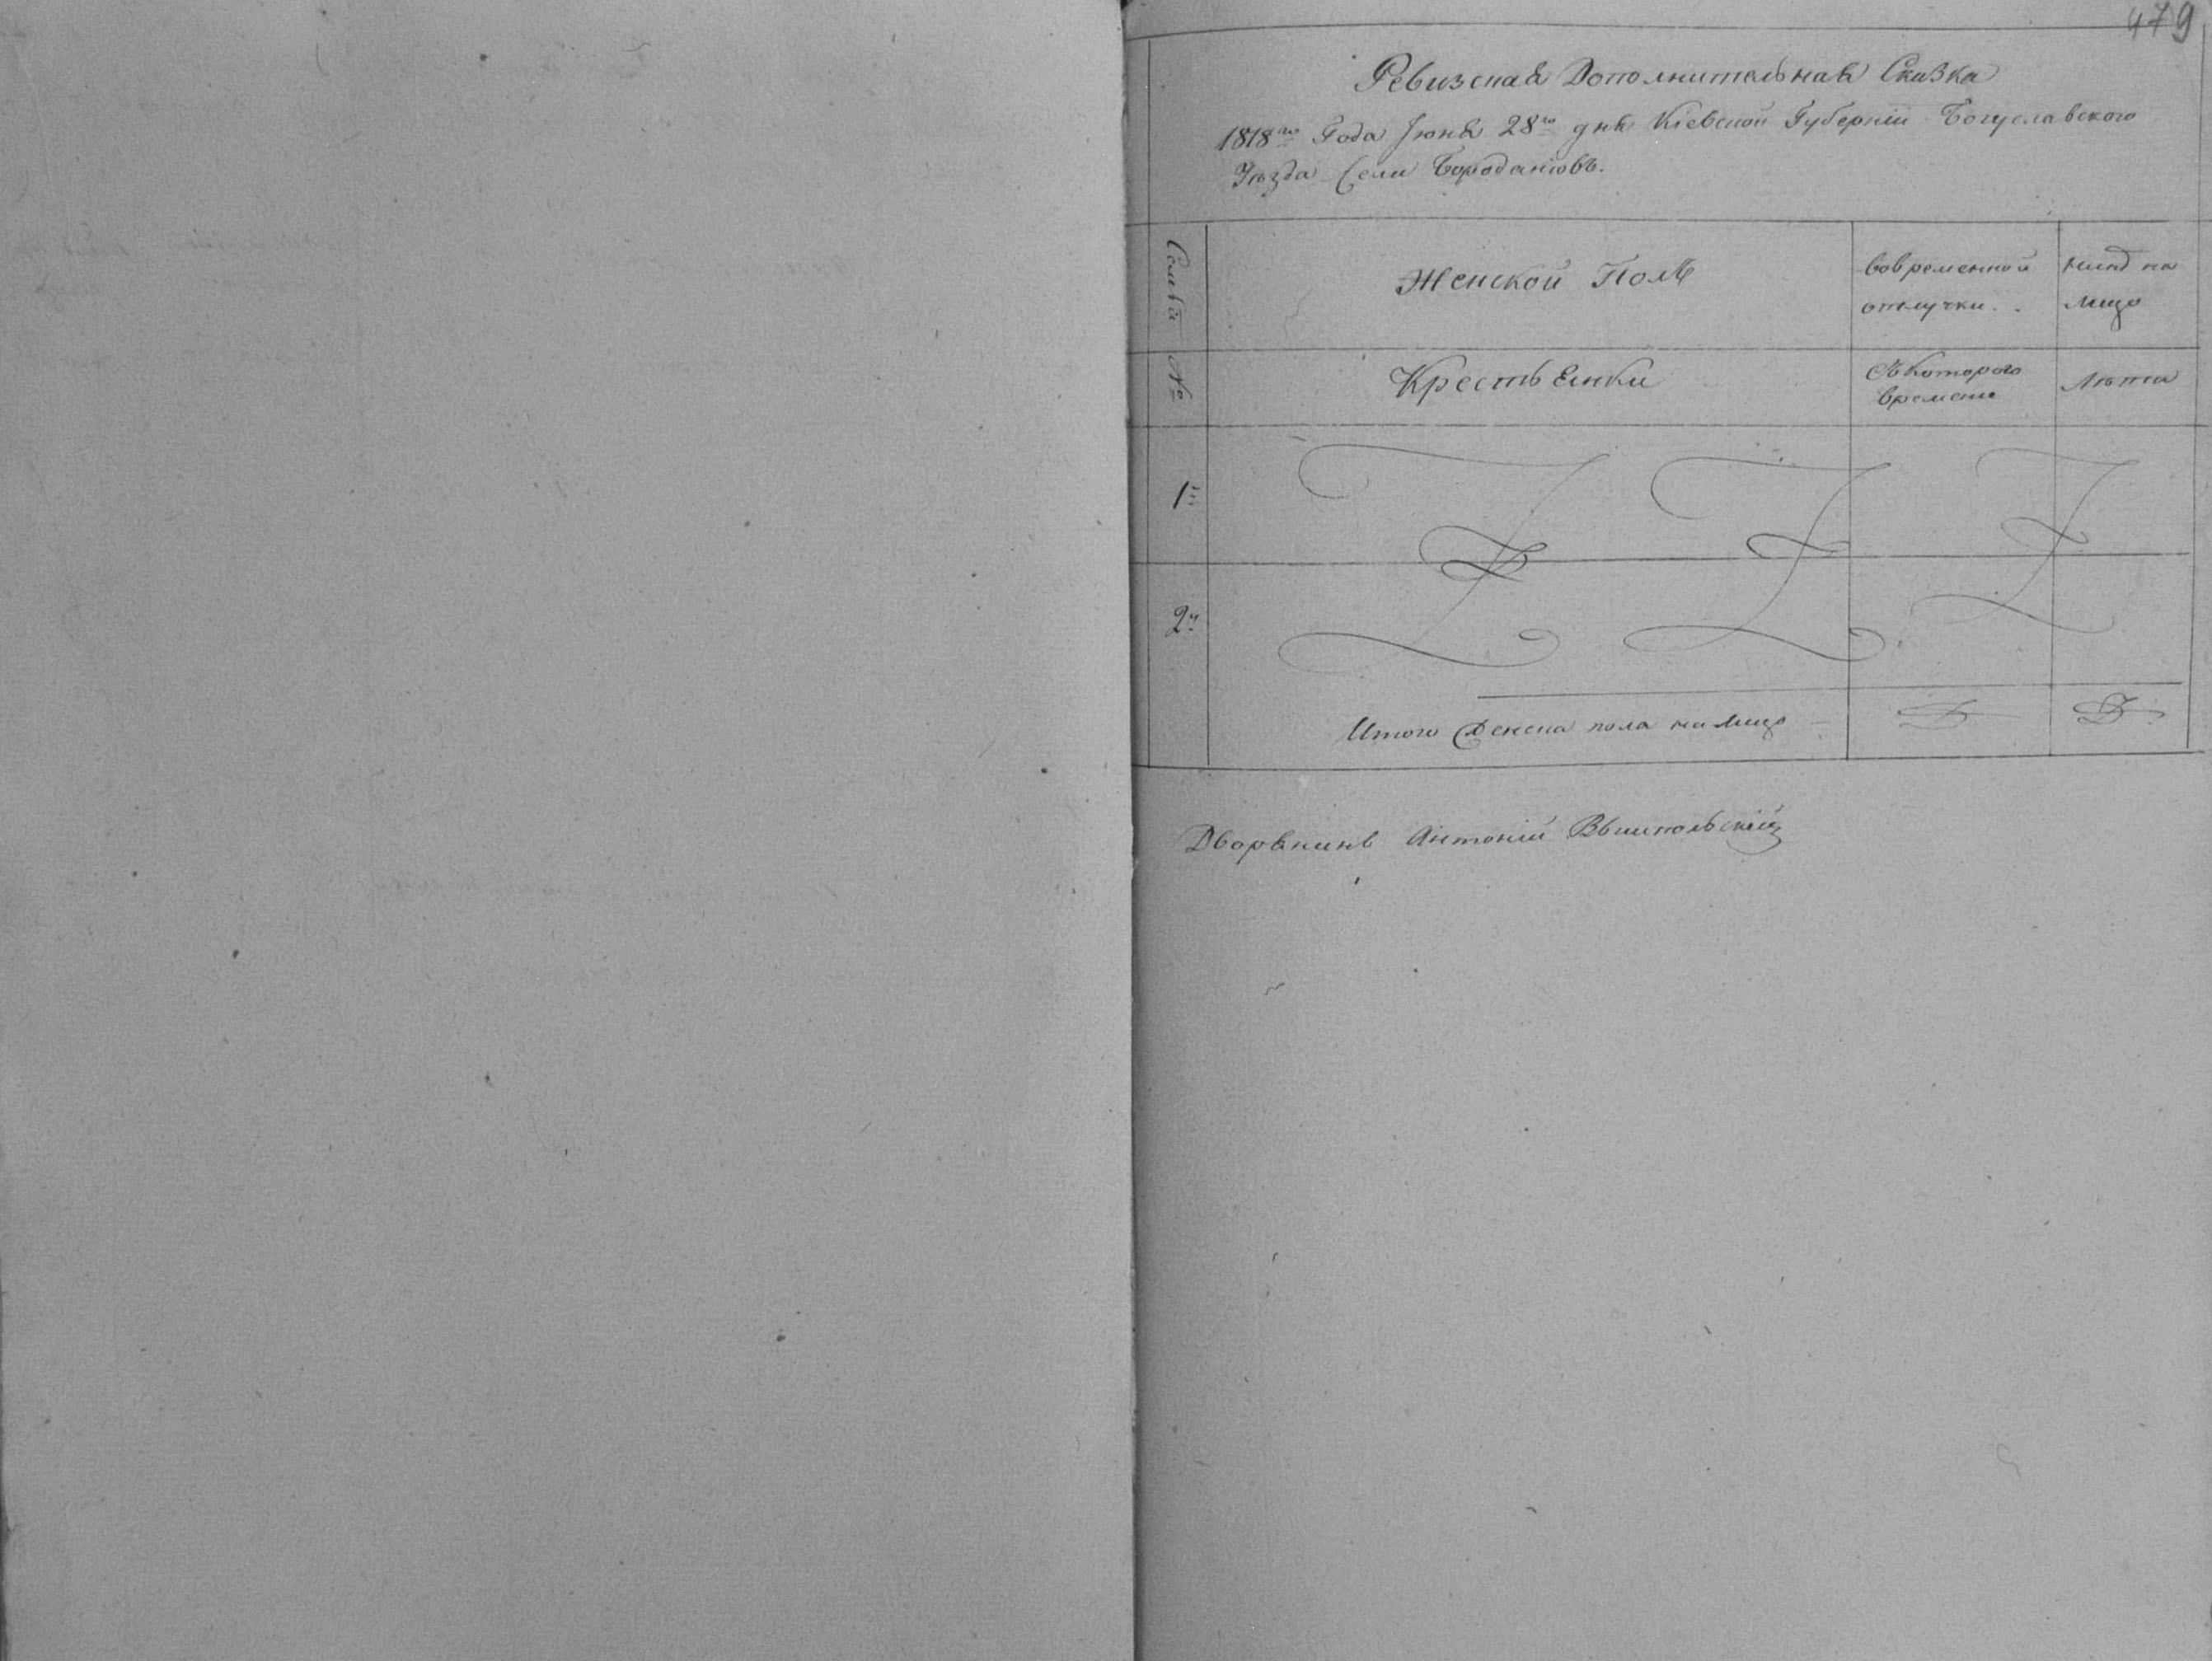 479
Ревизская Дополнительная Сказка
1818го Года Июня 28го дня Кіевской Губерніи Богуславского
Уѣзда Села Бородановъ.
Семья
Женской Полъ
вовременной
отлучки..
нинѣ на
лицо
№
Крестьянки
Съ которого
времени
Лѣта
1й
2й
Итого женска пола на лицо
Дворянинъ Антоній